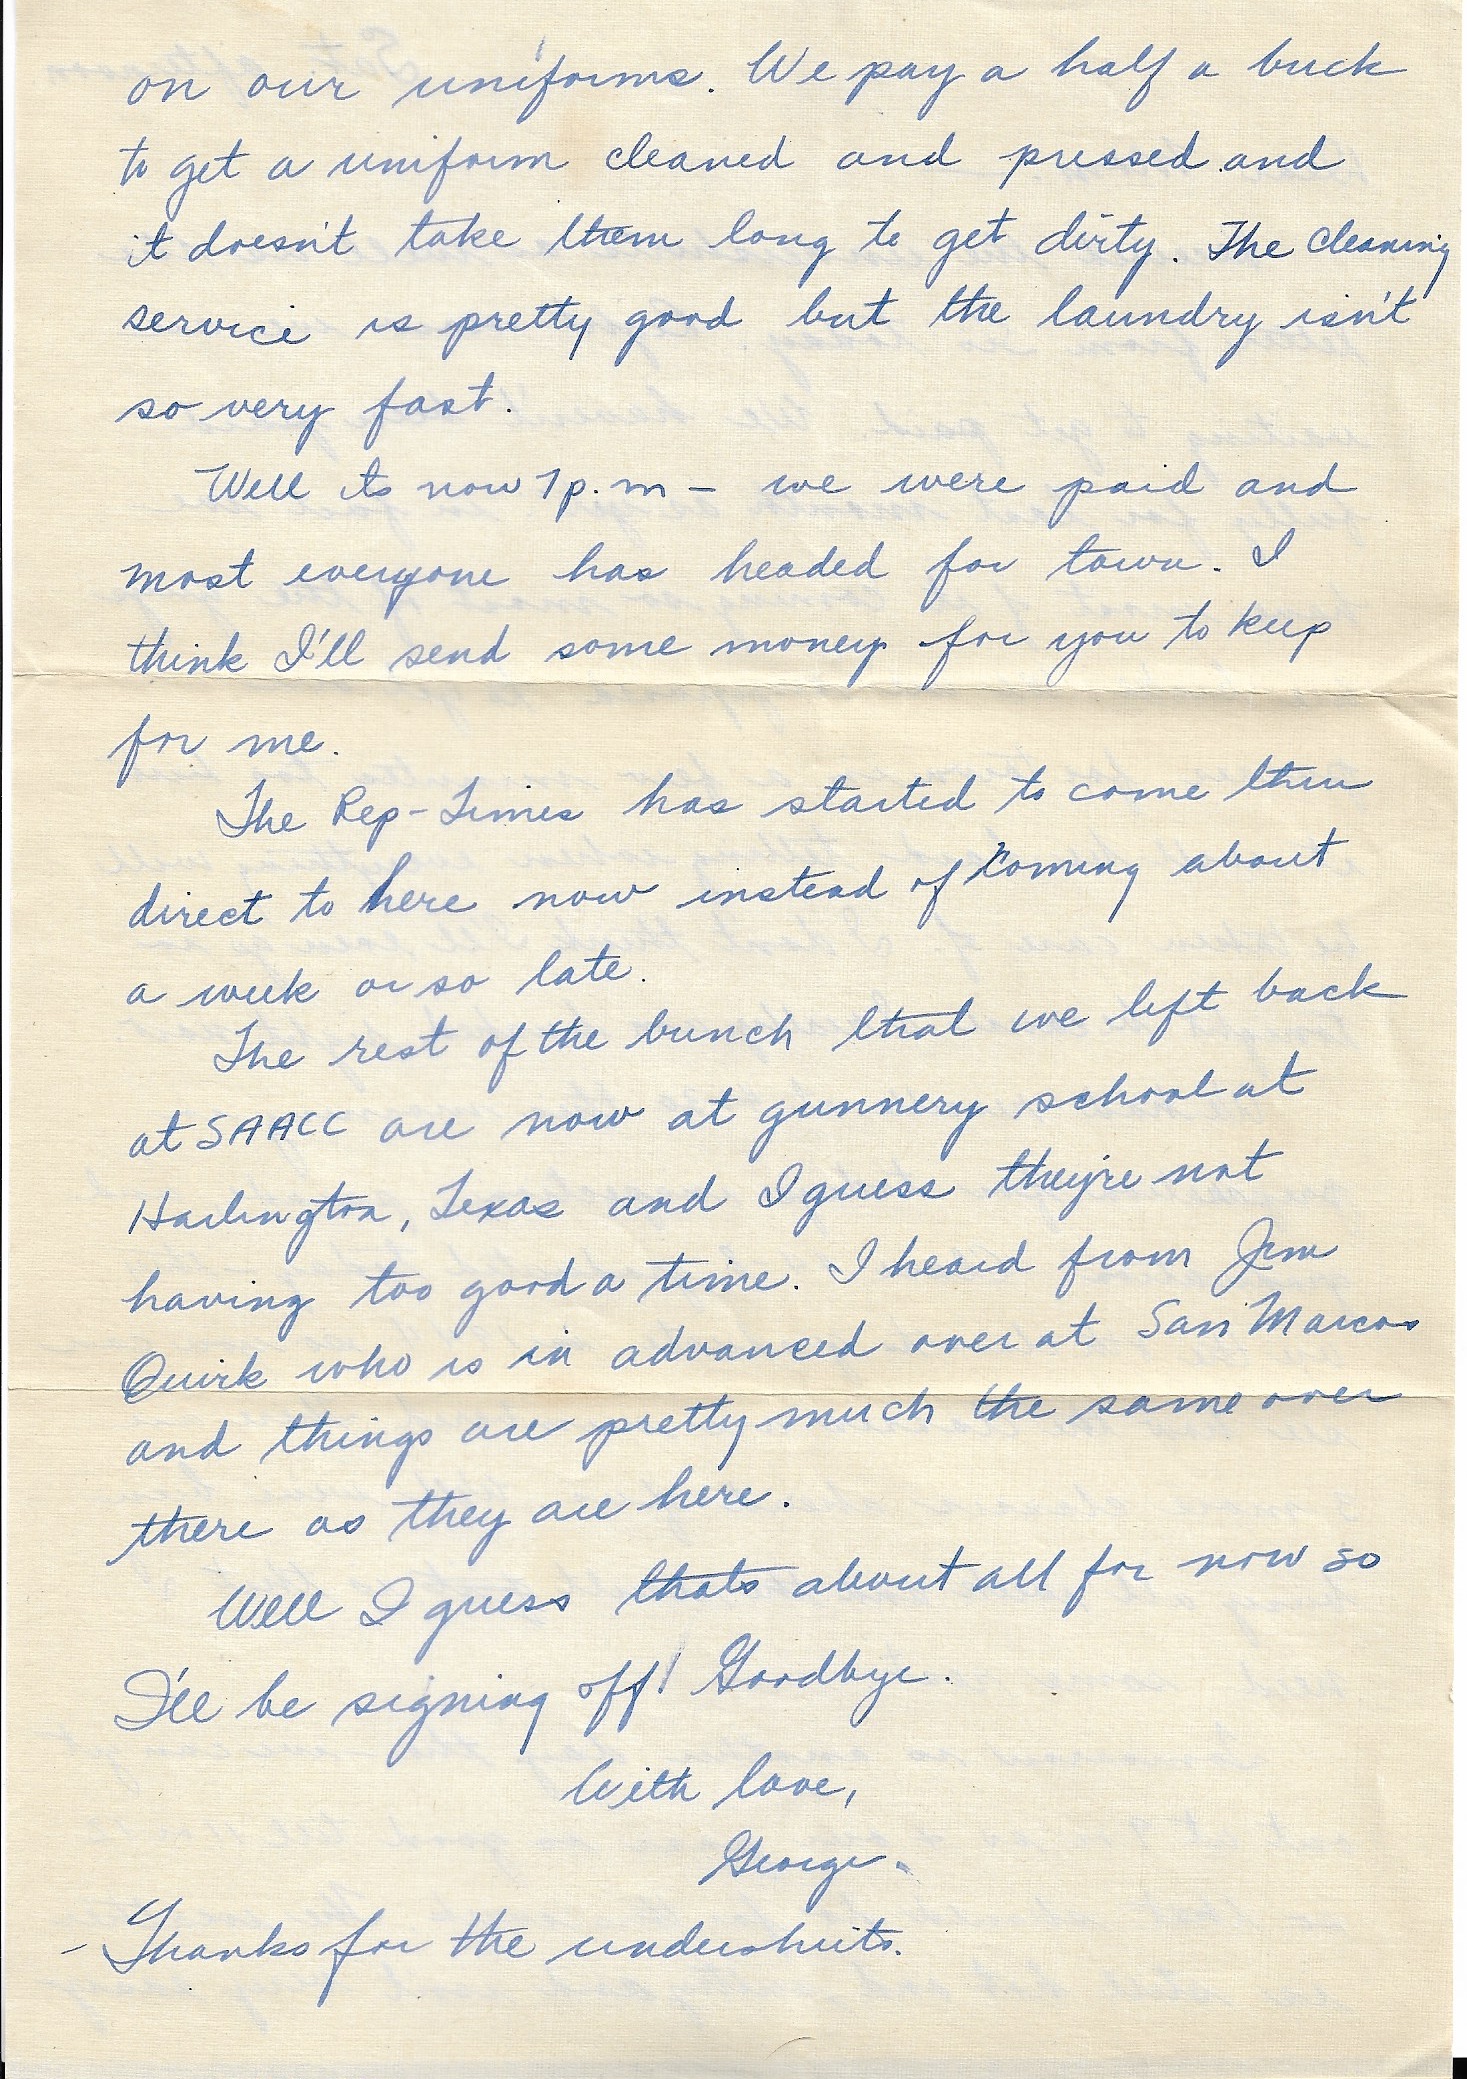 on our uniforms. We pay a half a buck
to get a uniform cleaned and pressed and
it doesn't take them long to get dirty. The cleaning
service is pretty good but the laundry isn't
so very fast.
Well its now 7 p.m - we were paid and
most everyone has headed for town. I
think I'll send some money for you to keep
for me.
The Rep-Times has started to come thru
direct to here now instead of coming about
a week or so late.
The rest of the bunch that we left back
at SAACC are now at gunnery school at
Harlington, Texas and I guess they're not
having too good a time. I heard from Jim
Quirk who is in advanced over at San Marcos
and things are pretty much the same over
there as they are here.
Well I guess thats about all for now so
I'll be signing off! Goodbye.
With love,
George.
- Thanks for the undershirts.